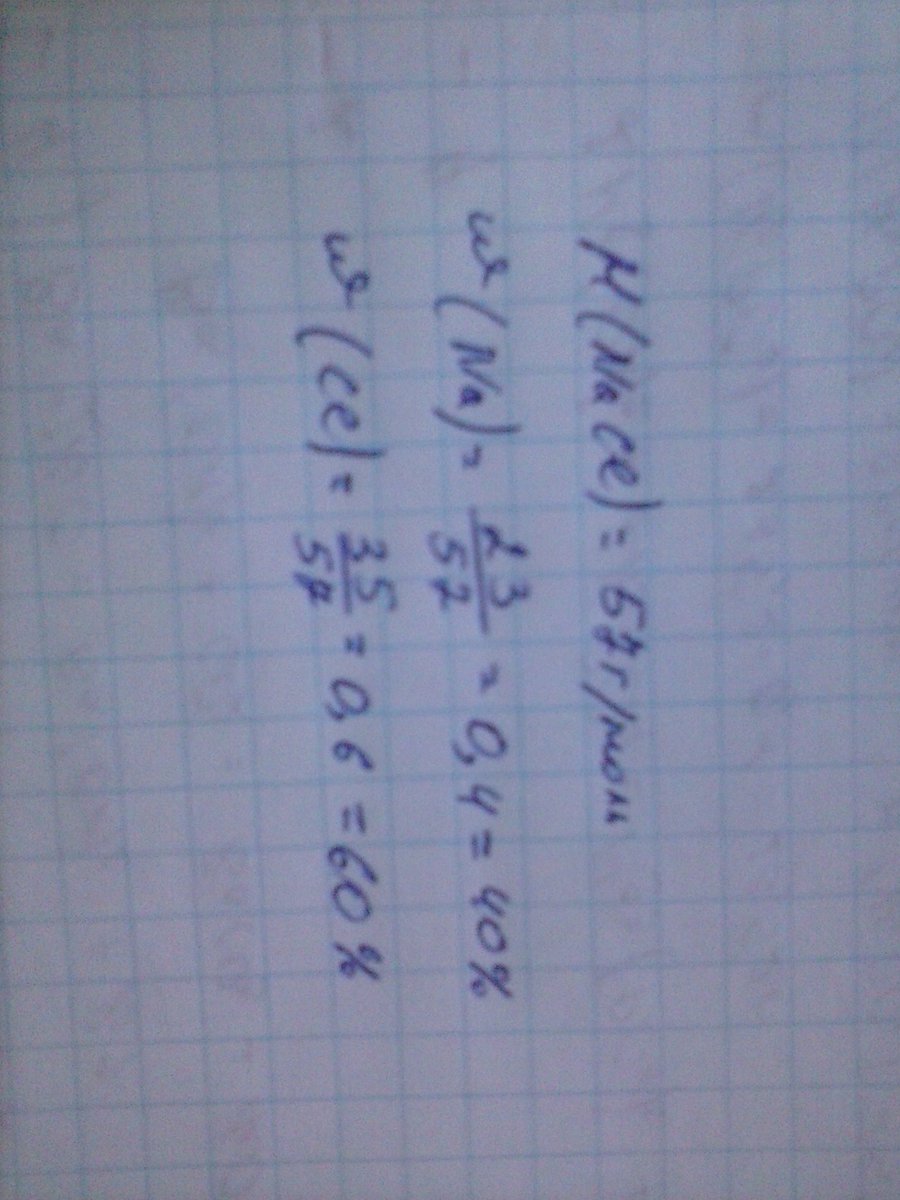 M(NaCl) = 57г/моль
w(Na) = 23/57 = 0,4 = 40%
w(Cl) = 35/57 = 0,6 = 60%